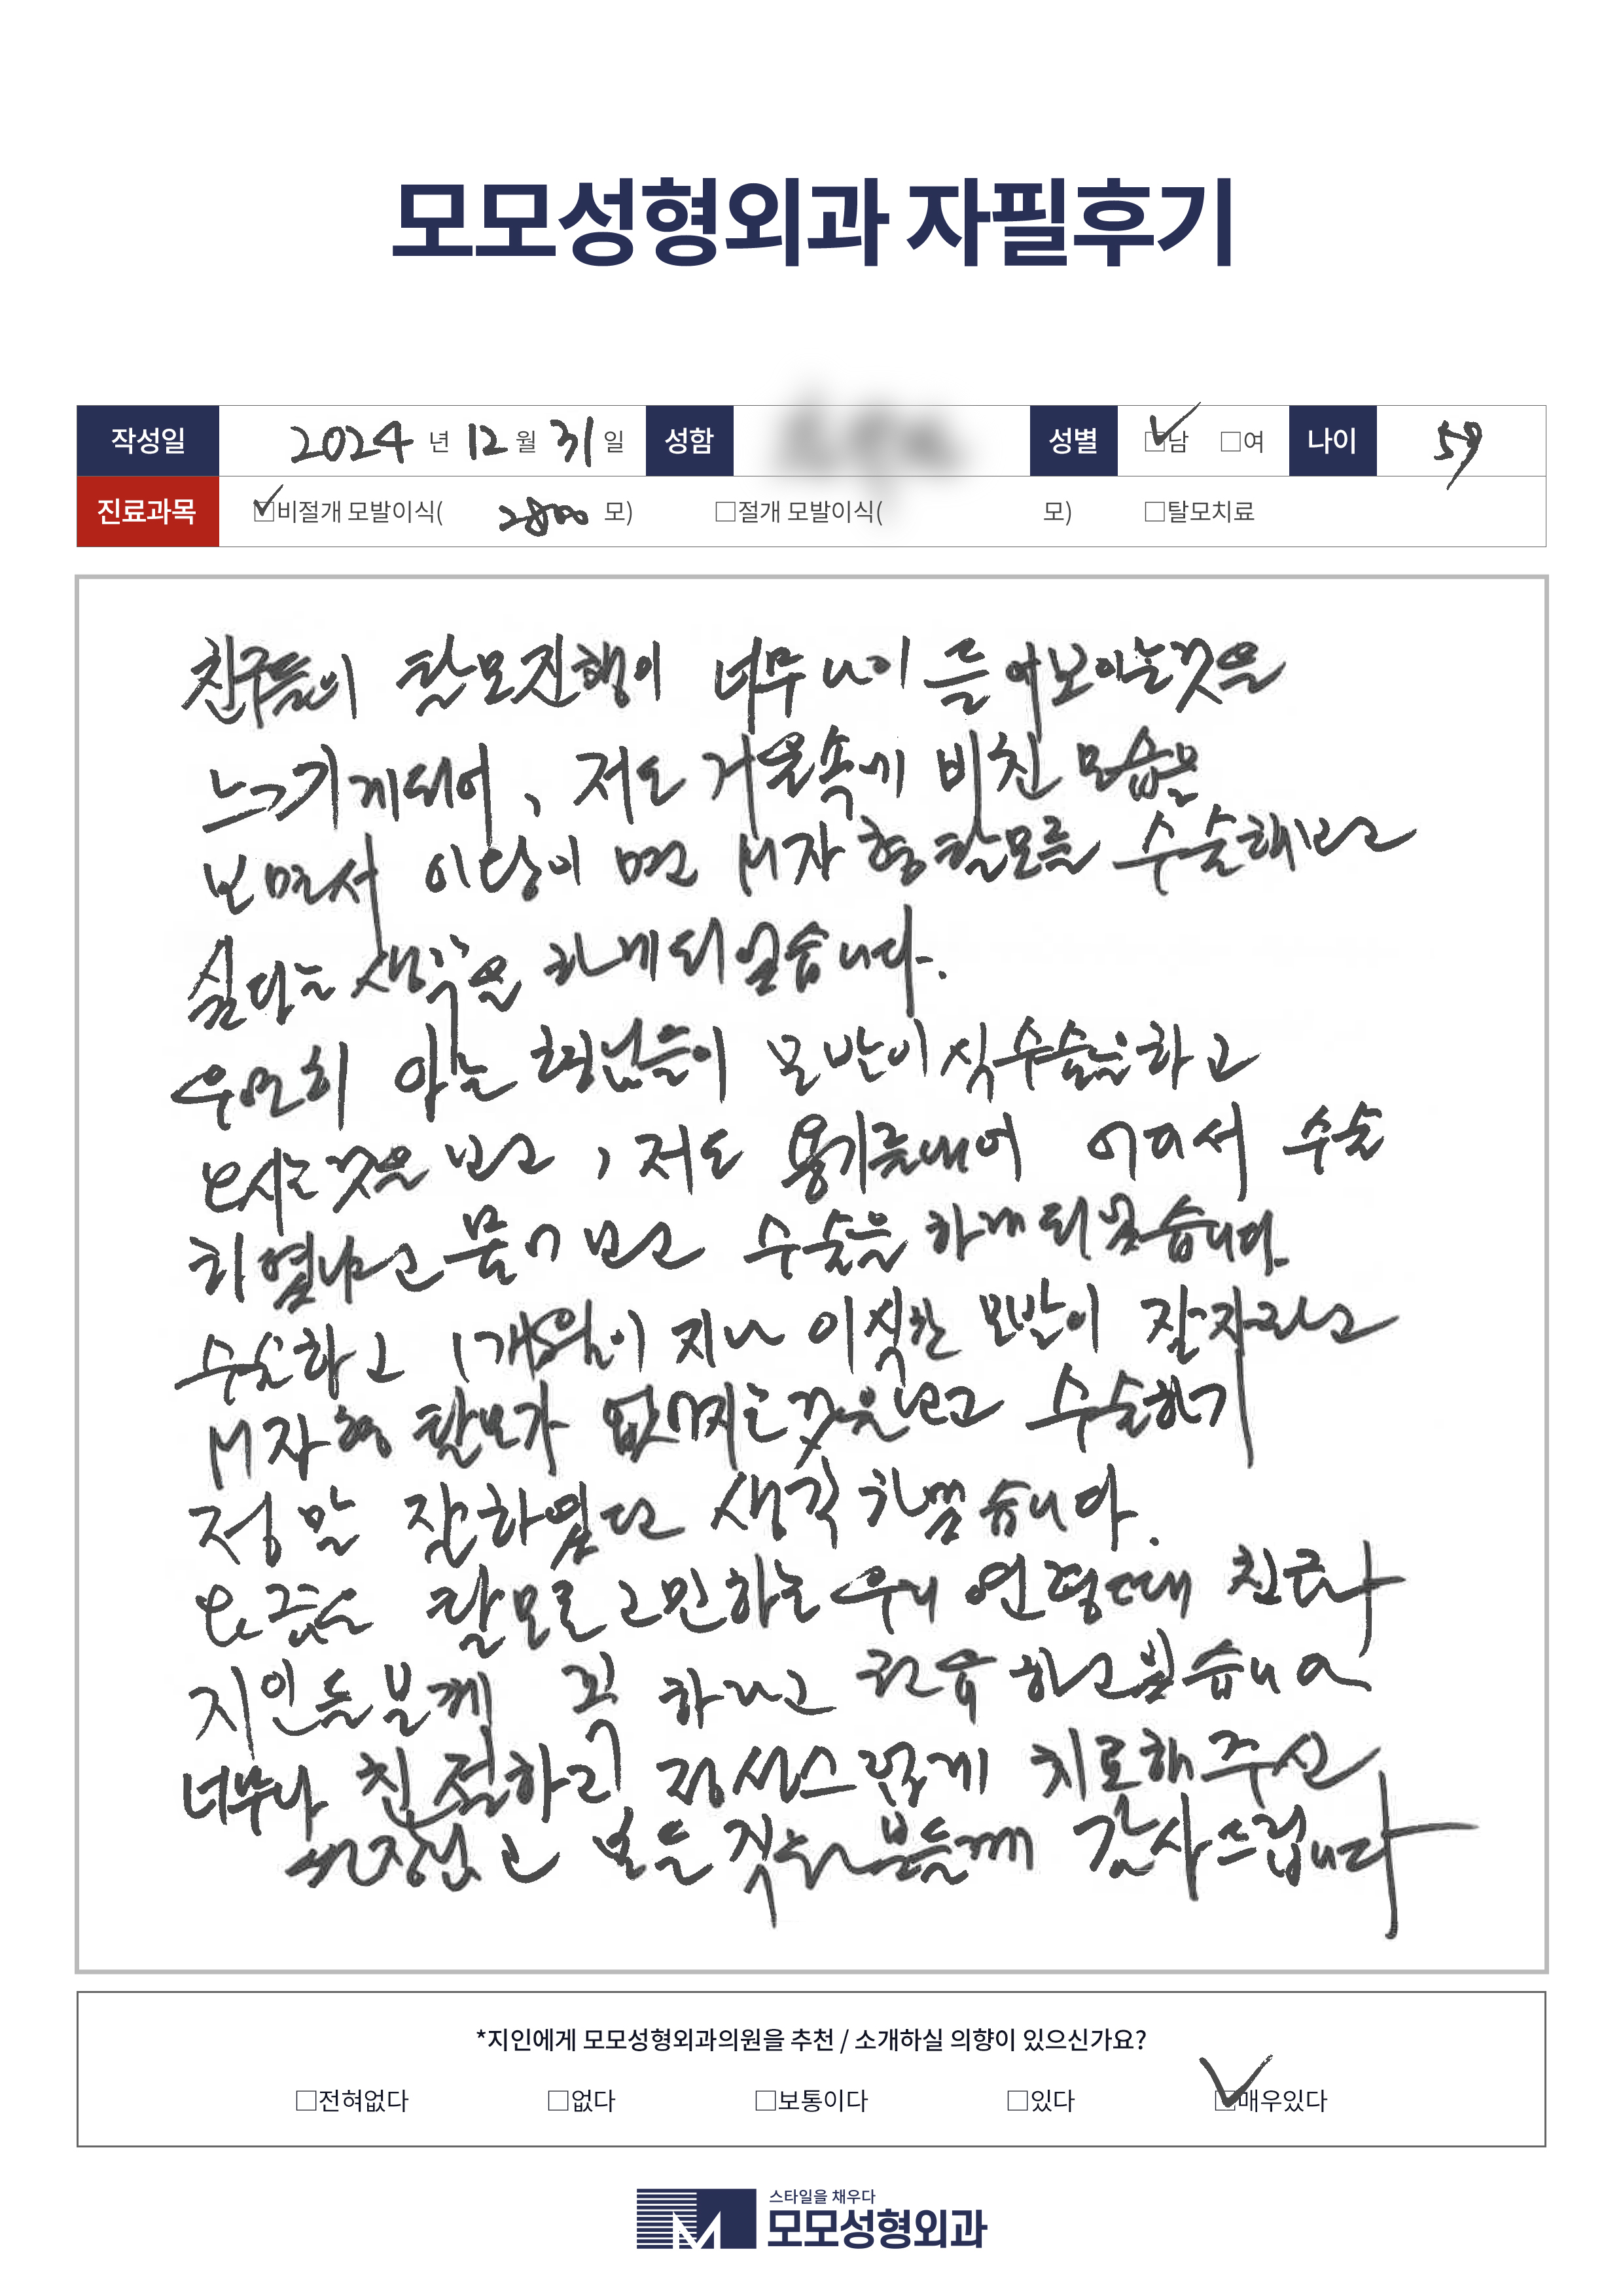 모모성형외과 자필후기
작성일 2024 년 12 월 31 일 성함 성별 ☑남 □여 나이 59
진료과목 ☑비절개 모발이식( 2800 모) □절개 모발이식( 모) □탈모치료
친구들의 탈모진행이 너무 나이 들어보이는것을
느끼게되어, 저도 거울속에 비친 모습을
보면서 이당이 면 M자형탈모를 수술해보고
싶다는 생각을 하게되었습니다.
우연히 아는 형님들이 모발이식수술을하고
오시는것을 보고, 저도 용기를내어 어디서 수술
하였냐고 물어보고 수술을 하게되었습니다.
수술하고 1개월이 지나 이식한 모발이 잘자라고
M자형 탈모가 없어지는것을보고 수술하기
정말 잘하였다 생각 습니다.
요즘도 탈모로 고민하는 우리 연령대 친구나
지인들분께 꼭 하라고 권유하고있습니다
너무나 친절하고 정성스럽게 치료해주신
원장님 모든 직원분들께 감사드립니다
*지인에게 모모성형외과의원을 추천 / 소개하실 의향이 있으신가요?
□전혀없다 □없다 □보통이다 □있다 ☑매우있다
스타일을 채우다
모모성형외과